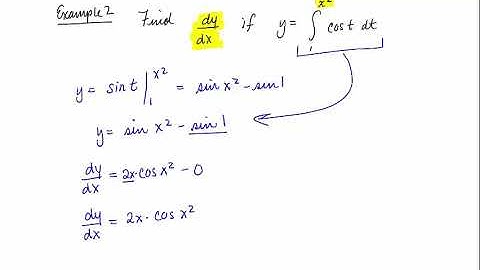 Example 2 Find dy/dx if y = ∫₁^(x²) cos t dt
y = sin t |₁^(x²) = sin x² - sin 1
y = sin x² - sin 1
dy/dx = 2x · cos x² - 0
dy/dx = 2x · cos x²